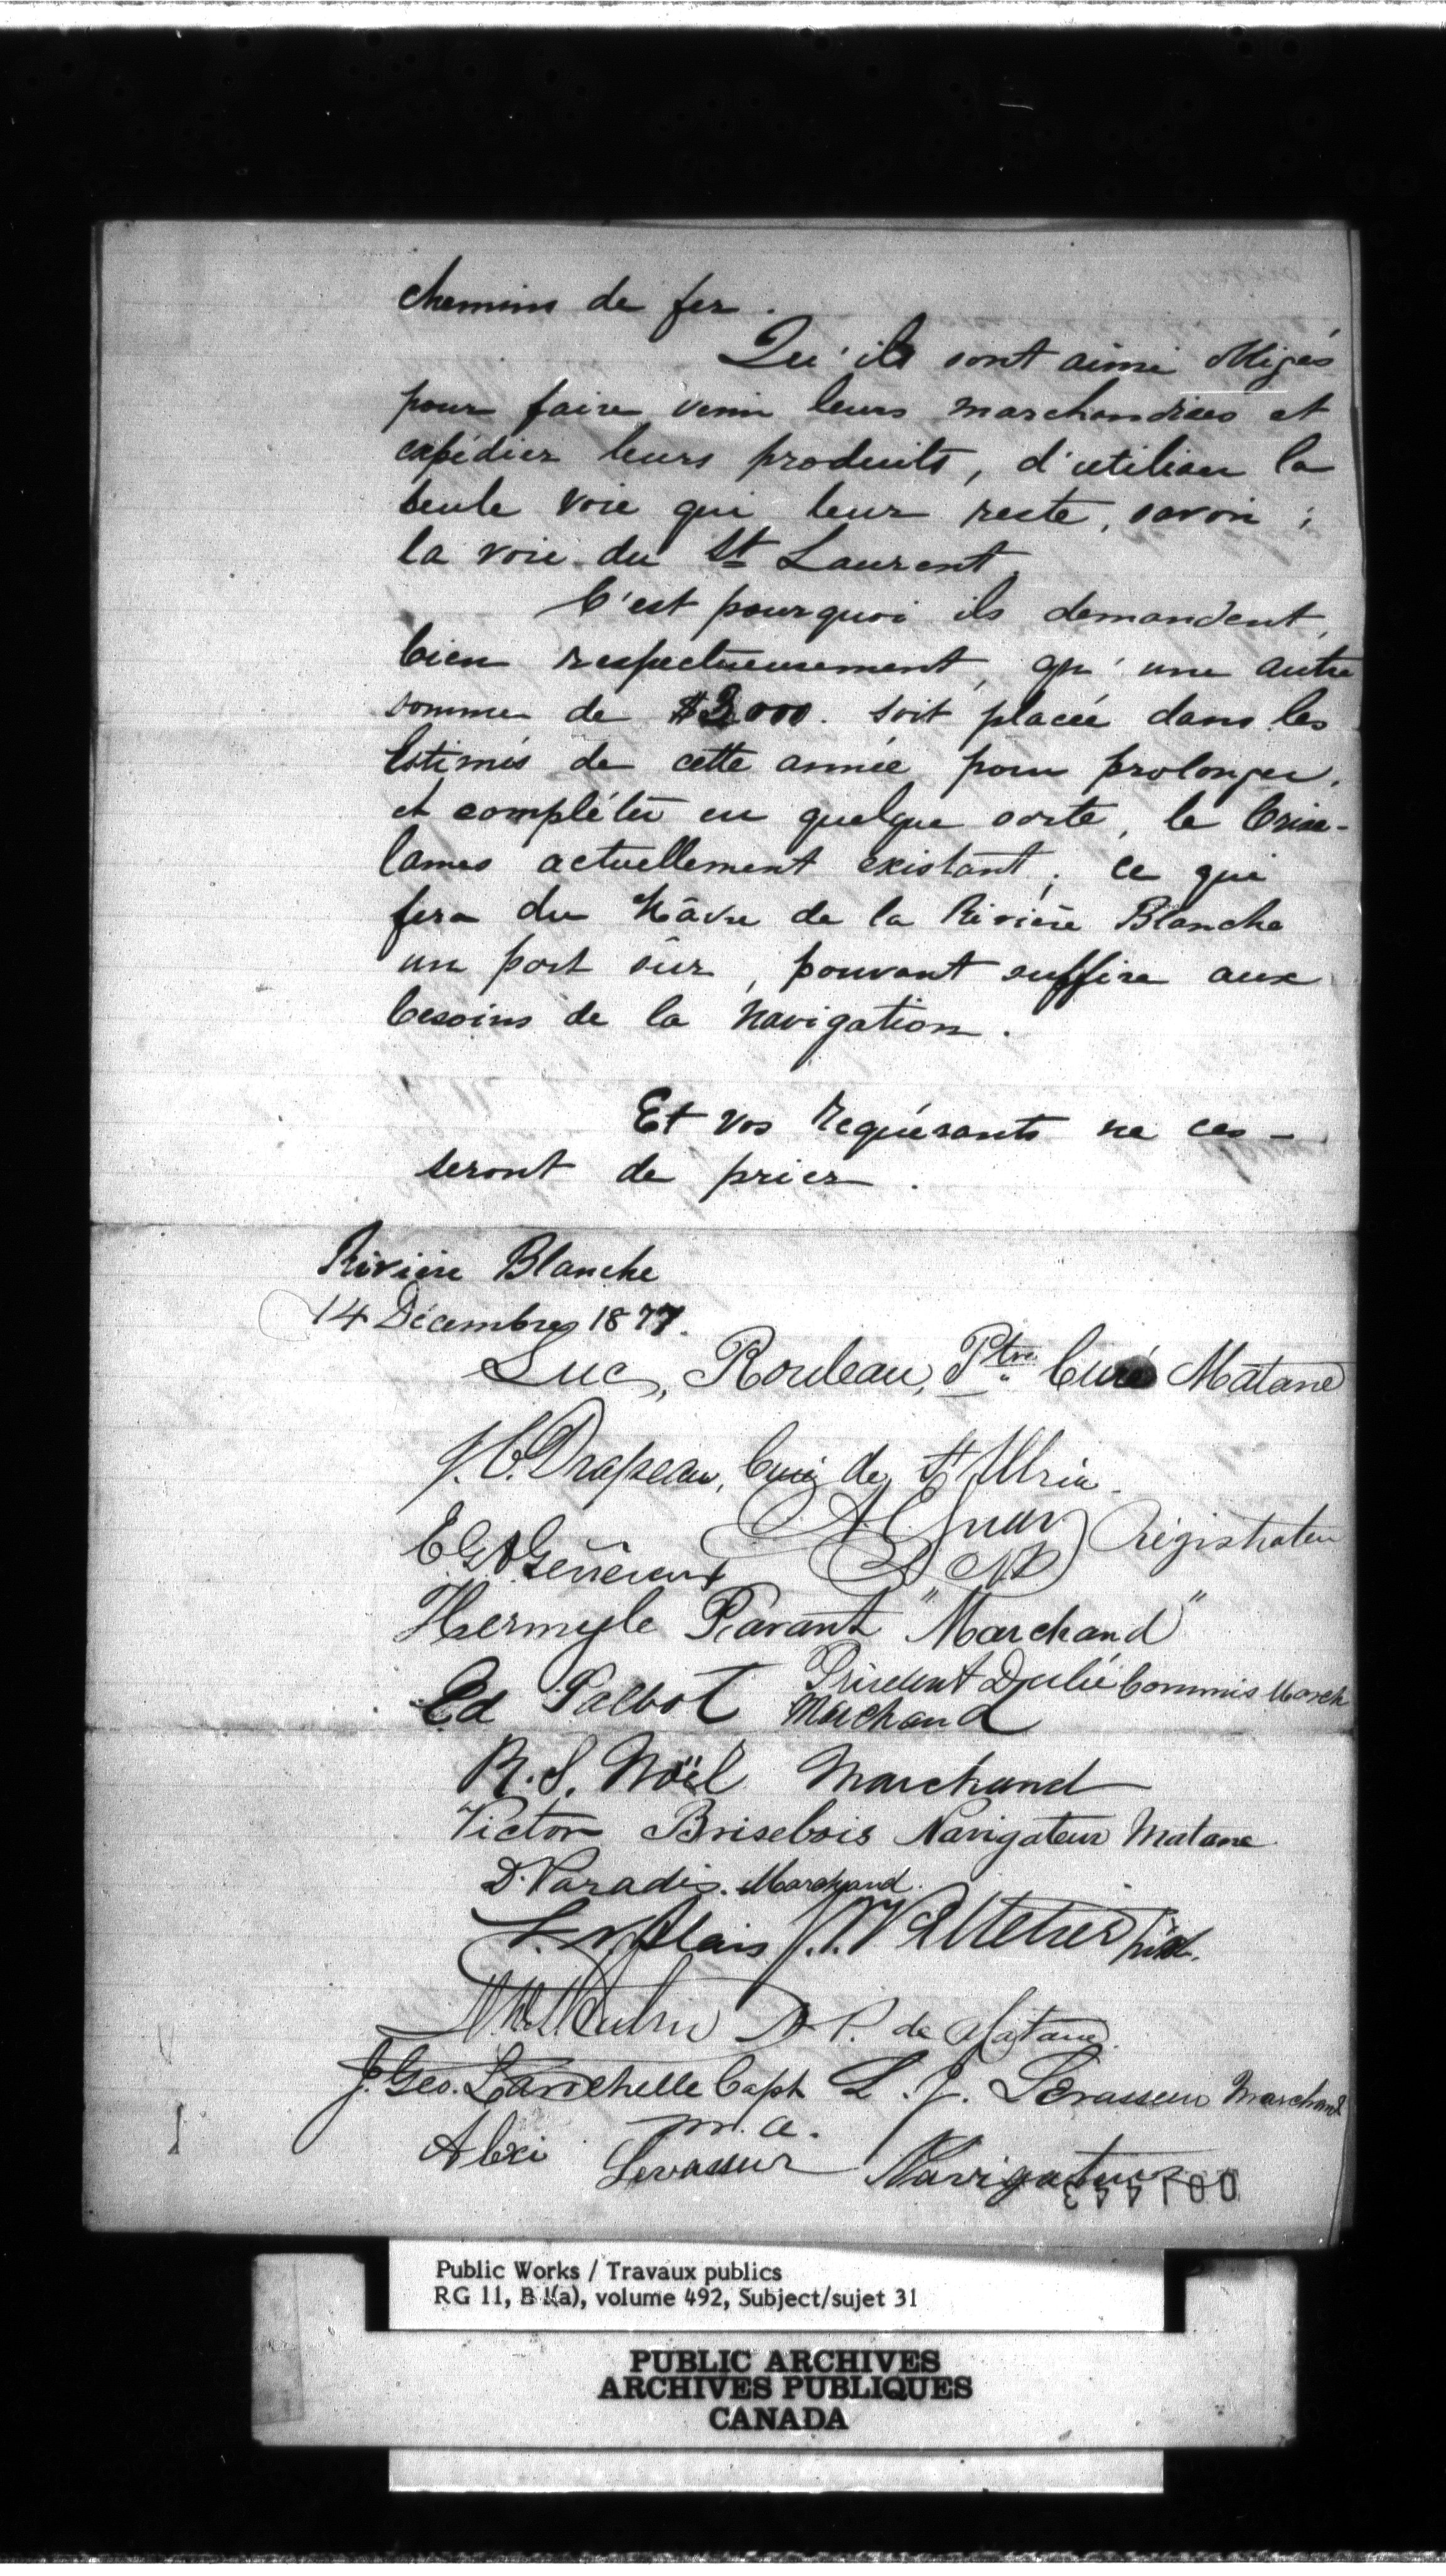 chemins de fer.
Qu'ils sont ainsi obligés
pour faire venir leurs marchandises et
expédier leurs produits, d'utiliser la
seule voie qui leur reste, savoir ;
la voie du St Laurent.
C'est pourquoi ils demandent,
bien respectueusement, qu'une autre
somme de $3000. soit placée dans les
Estimés de cette année pour prolonger,
et compléter en quelque sorte, le brise-
lames actuellement existant ; ce qui
fera du Hâvre de la Rivière Blanche
un port sûr, pouvant suffire aux
besoins de la navigation.
Et vos requérants ne ces-
seront de prier.
Rivière Blanche
14 Décembre 1877.
Luc Rouleau, Ptre Curé Matane
J. C. Drapeau, Curé de St Ulric.
Régistrateur
N P
Hermyle Pavant "Marchand"
Prudent Dubé Commis March
Ed Talbot Marchand
R. S. Noël Marchand
Victor Brisebois Navigateur Matane
D. Paradis. Marchand.
Blais Pelletier
P. de Matane
J. Geo. Larochelle Capt L. J. Levasseur Marchand
m. a.
Alexi Levasseur Navigateur
001443
Public Works / Travaux publics
RG 11, B 1(a), volume 492, Subject/sujet 31
PUBLIC ARCHIVES
ARCHIVES PUBLIQUES
CANADA